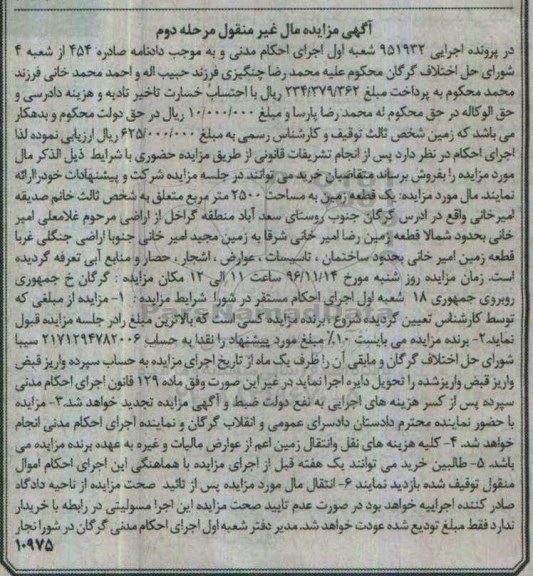 آگهی مزایده مال غیر منقول مرحله دوم
در پرونده اجرایی ۹۵۱۹۳۲ شعبه اول اجرای احکام مدنی و به موجب دادنامه صادره ۴۵۴ از شعبه ۴
شورای حل اختلاف گرگان محکوم علیه محمد رضا چنگیزی فرزند حبیب اله و احمد محمد خانی فرزند
محمد محکوم به پرداخت مبلغ ۲۳۴/۳۷۹/۳۶۲ ریال با احتساب خسارت تاخیر تادیه و هزینه دادرسی و
حق الوکاله در حق محکوم له محمد رضا پارسا و مبلغ ۱۰/۰۰۰/۰۰۰ ریال در حق دولت محکوم و بدهکار
می باشد که زمین شخص ثالث توقیف و کارشناس رسمی به مبلغ ۶۲۵/۰۰۰/۰۰۰ ریال ارزیابی نموده لذا
اجرای احکام در نظر دارد پس از انجام تشریفات قانونی از طریق مزایده حضوری با شرایط ذیل الذکر مال
مورد مزایده را بفروش برساند متقاضیان خرید می توانند در جلسه مزایده شرکت و پیشنهادات خودراارائه
نمایند. مال مورد مزایده: یک قطعه زمین به مساحت ۲۵۰۰ متر مربع متعلق به شخص ثالث خانم صدیقه
امیر خانی واقع در ادرس گرگان جنوب روستای سعد آباد منطقه گراخل از اراضی مرحوم غلامعلی امیر
خانی بحدود شمالا قطعه زمین رضا امیر خانی شرقا به زمین مجید امیر خانی جنوبا اراضی جنگلی غربا
قطعه زمین امیر خانی بحدود ساختمان ، تاسیسات ، عوارض ، اشجار ، حصار و منابع آبی تعرفه گردیده
است. زمان مزایده روز شنبه مورخ ۹۶/۱۱/۱۴ ساعت ۱۱ الی ۱۲ مکان مزایده : گرگان خ جمهوری
روبروی جمهوری ۱۸ شعبه اول اجرای احکام مستقر در شورا شرایط مزایده : ۱- مزایده از مبلغی که
توسط کارشناس تعیین گردیده شروع ، برنده مزایده کسی است که بالاترین مبلغ رادر جلسه مزایده قبول
نماید.۲- برنده مزایده می بایست ۱۰٪ مبلغ مورد پیشنهاد را نقدا به حساب ۲۱۷۱۲۹۴۷۸۲۰۰۶ سیبا
شورای حل اختلاف گرگان و مابقی آن را ظرف یک ماه از تاریخ اجرای مزایده به حساب سپرده واریز قبض
واریز قبض واریزشده را تحویل دایره اجرا نماید در غیر این صورت وفق ماده ۱۲۹ قانون اجرای احکام مدنی
سپرده پس از کسر هزینه های اجرایی به نفع دولت ضبط و آگهی مزایده تجدید خواهد شد.۳- مزایده
با حضور نماینده محترم دادستان دادسرای عمومی و انقلاب گرگان و نماینده اجرای احکام مدنی انجام
خواهد شد. ۴- کلیه هزینه های نقل وانتقال زمین اعم از عوارض مالیات و غیره به عهده برنده مزایده می
باشد. ۵- طالبین خرید می توانند یک هفته قبل از اجرای مزایده با هماهنگی این اجرای احکام اموال
منقول توقیف شده بازدید نمایند ۶- انتقال مال مورد مزایده پس از تائید صحت مزایده از ناحیه دادگاه
صادر کننده اجراییه خواهد بود در صورت عدم تایید صحت مزایده این اجرا مسولیتی در رابطه با خریدار
ندارد فقط مبلغ تودیع شده عودت خواهد شد. مدیر دفتر شعبه اول اجرای احکام مدنی گرگان در شورا نجار
۱۰۹۷۵